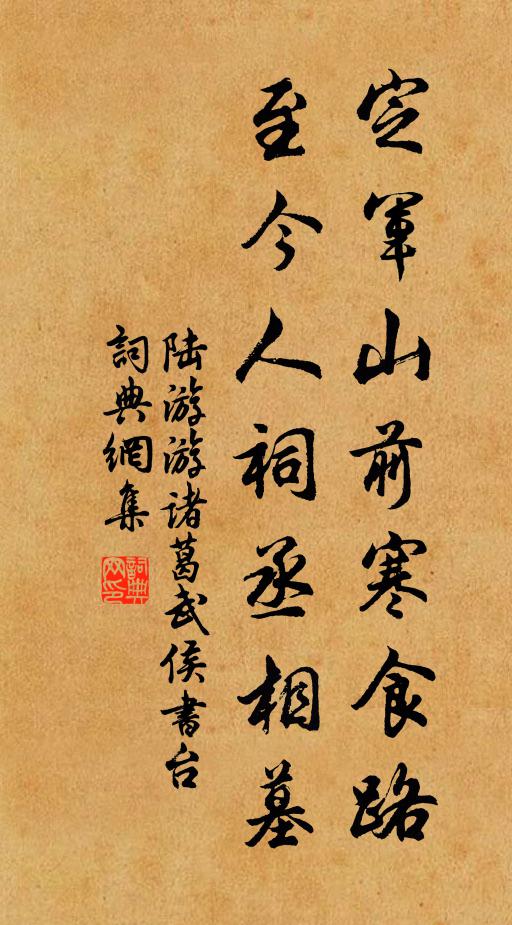 定军山前寒食路
至今人祠丞相墓
陆游游诸葛武侯书台
詞典網集
詞典网印